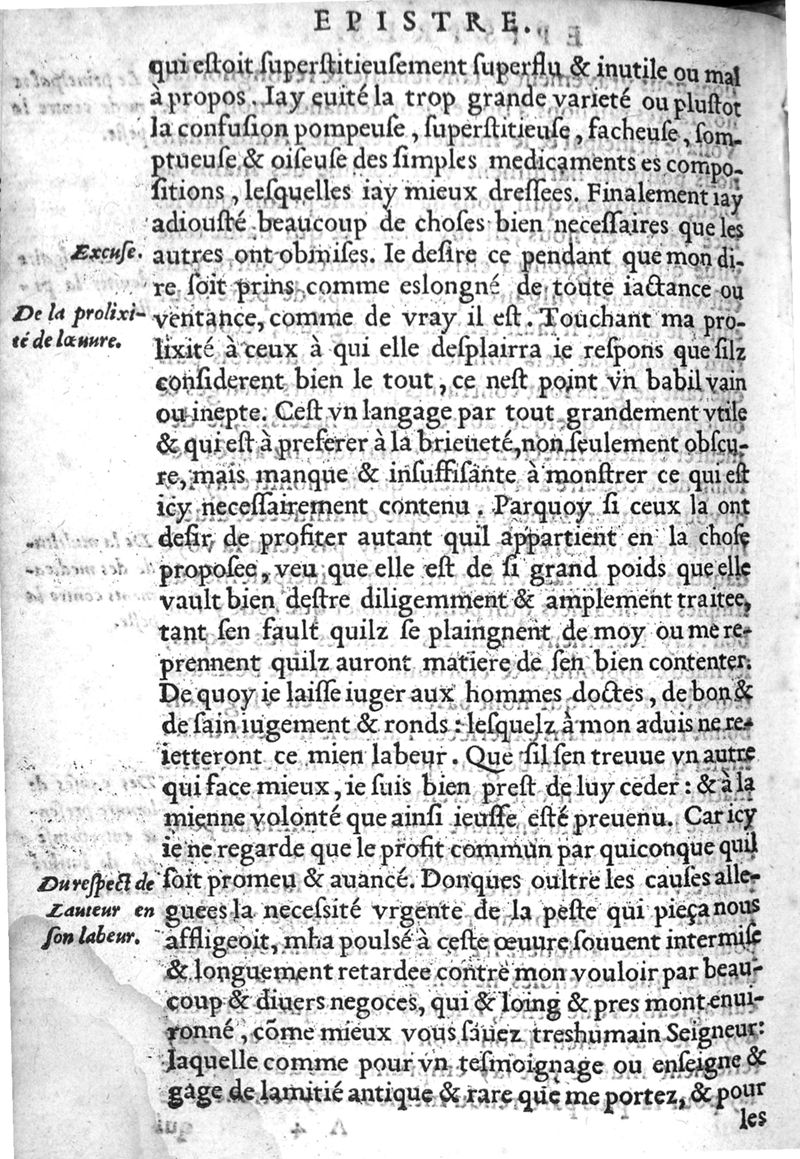 EPISTRE.
qui eſtoit ſuperſtitieuſement ſuperflu & inutile ou mal
à propos. Iay euité la trop grande varieté ou pluſtot
la confuſion pompeuſe, ſuperſtitieuſe, facheuſe, ſom-
ptueuſe & oiſeuſe des ſimples medicaments es compo-
ſitions, leſquelles iay mieux dreſſees. Finalement iay
adiouſté beaucoup de choſes bien neceſſaires que les
Excuſe.
autres ont obmiſes. Ie deſire ce pendant que mon di-
re ſoit prins comme eslongné de toute iactance ou
De la prolixi-
té de lœuure.
ventance, comme de vray il eſt. Touchant ma pro-
lixité à ceux à qui elle deſplairra ie reſpons que ſilz
conſiderent bien le tout, ce neſt point vn babil vain
ou inepte. Ceſt vn langage par tout grandement vtile
& qui eſt à preferer à la brieueté, non ſeulement obſcu-
re, mais manque & inſuffiſante à monſtrer ce qui eſt
icy neceſſairement contenu. Parquoy ſi ceux la ont
deſir de profiter autant quil appartient en la choſe
propoſee, veu que elle eſt de ſi grand poids que elle
vault bien deſtre diligemment & amplement traitee,
tant ſen fault quilz ſe plaingnent de moy ou me re-
prennent quilz auront matiere de ſen bien contenter.
De quoy ie laiſſe iuger aux hommes doctes, de bon &
de ſain iugement & ronds: leſquelz à mon aduis ne re-
ietteront ce mien labeur. Que ſil ſen treuue vn autre
qui face mieux, ie ſuis bien preſt de luy ceder: & à la
mienne volonté que ainſi ieuſſe eſté preuenu. Car icy
ie ne regarde que le profit commun par quiconque quil
Du reſpect de
Lauteur en
ſon labeur.
ſoit promeu & auancé. Donques oultre les cauſes alle-
guees la neceſsité vrgente de la peſte qui pieça nous
affligeoit, mha poulſé à ceſte œuure ſouuent intermiſe
& longuement retardee contre mon vouloir par beau-
coup & diuers negoces, qui & loing & pres mont enui-
ronné, cõme mieux vous ſauez treshumain Seigneur:
laquelle comme pour vn teſmoignage ou enſeigne &
gage de lamitié antique & rare que me portez, & pour
les